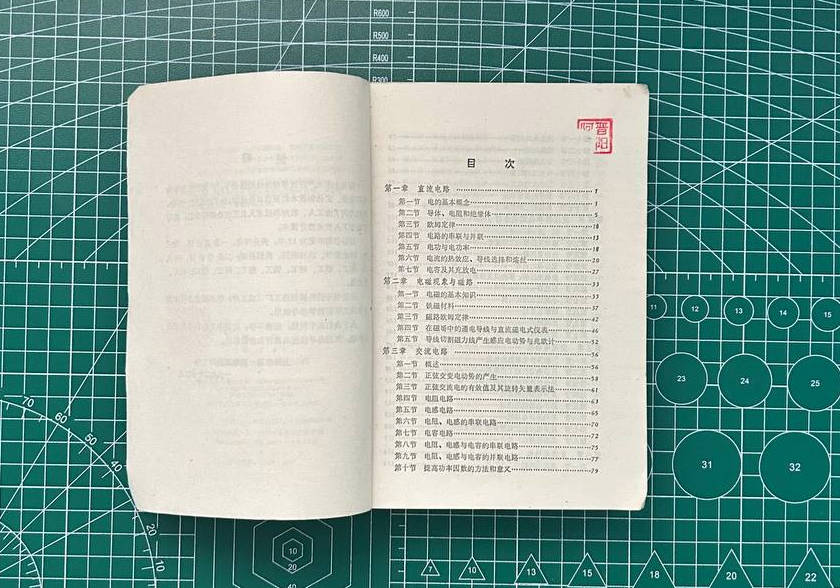 R600
R500
R400
R300
晋阳
目 次
第一章 直流电路 1
第一节 电的基本概念 1
第二节 导体、电阻和绝缘体 5
第三节 欧姆定律 10
第四节 电路的串联与并联 13
第五节 电功与电功率 18
第六节 电流的热效应、导线选择和熔丝 20
第七节 电容及其充放电 27
第二章 电磁现象与磁路 33
第一节 电磁的基本知识 33
第二节 铁磁材料 37
第三节 磁路欧姆定律 42
第四节 在磁场中的通电导线与直流磁电式仪表 46
第五节 导线切割磁力线产生感应电动势与兆欧计 52
第三章 交流电路 56
第一节 概述 56
第二节 正弦交变电动势的产生 58
第三节 正弦交流电的有效值及其旋转矢量表示法 61
第四节 电阻电路 63
第五节 电感电路 65
第六节 电阻、电感的串联电路 70
第七节 电容电路 72
第八节 电阻、电感与电容的串联电路 75
第九节 电阻、电感与电容的并联电路 77
第十节 提高功率因数的方法和意义 79
11 12 13 14 15
23 24 25
31 32
70
60
50
20
10
10
20
40
7 10 13 15 18 20 22